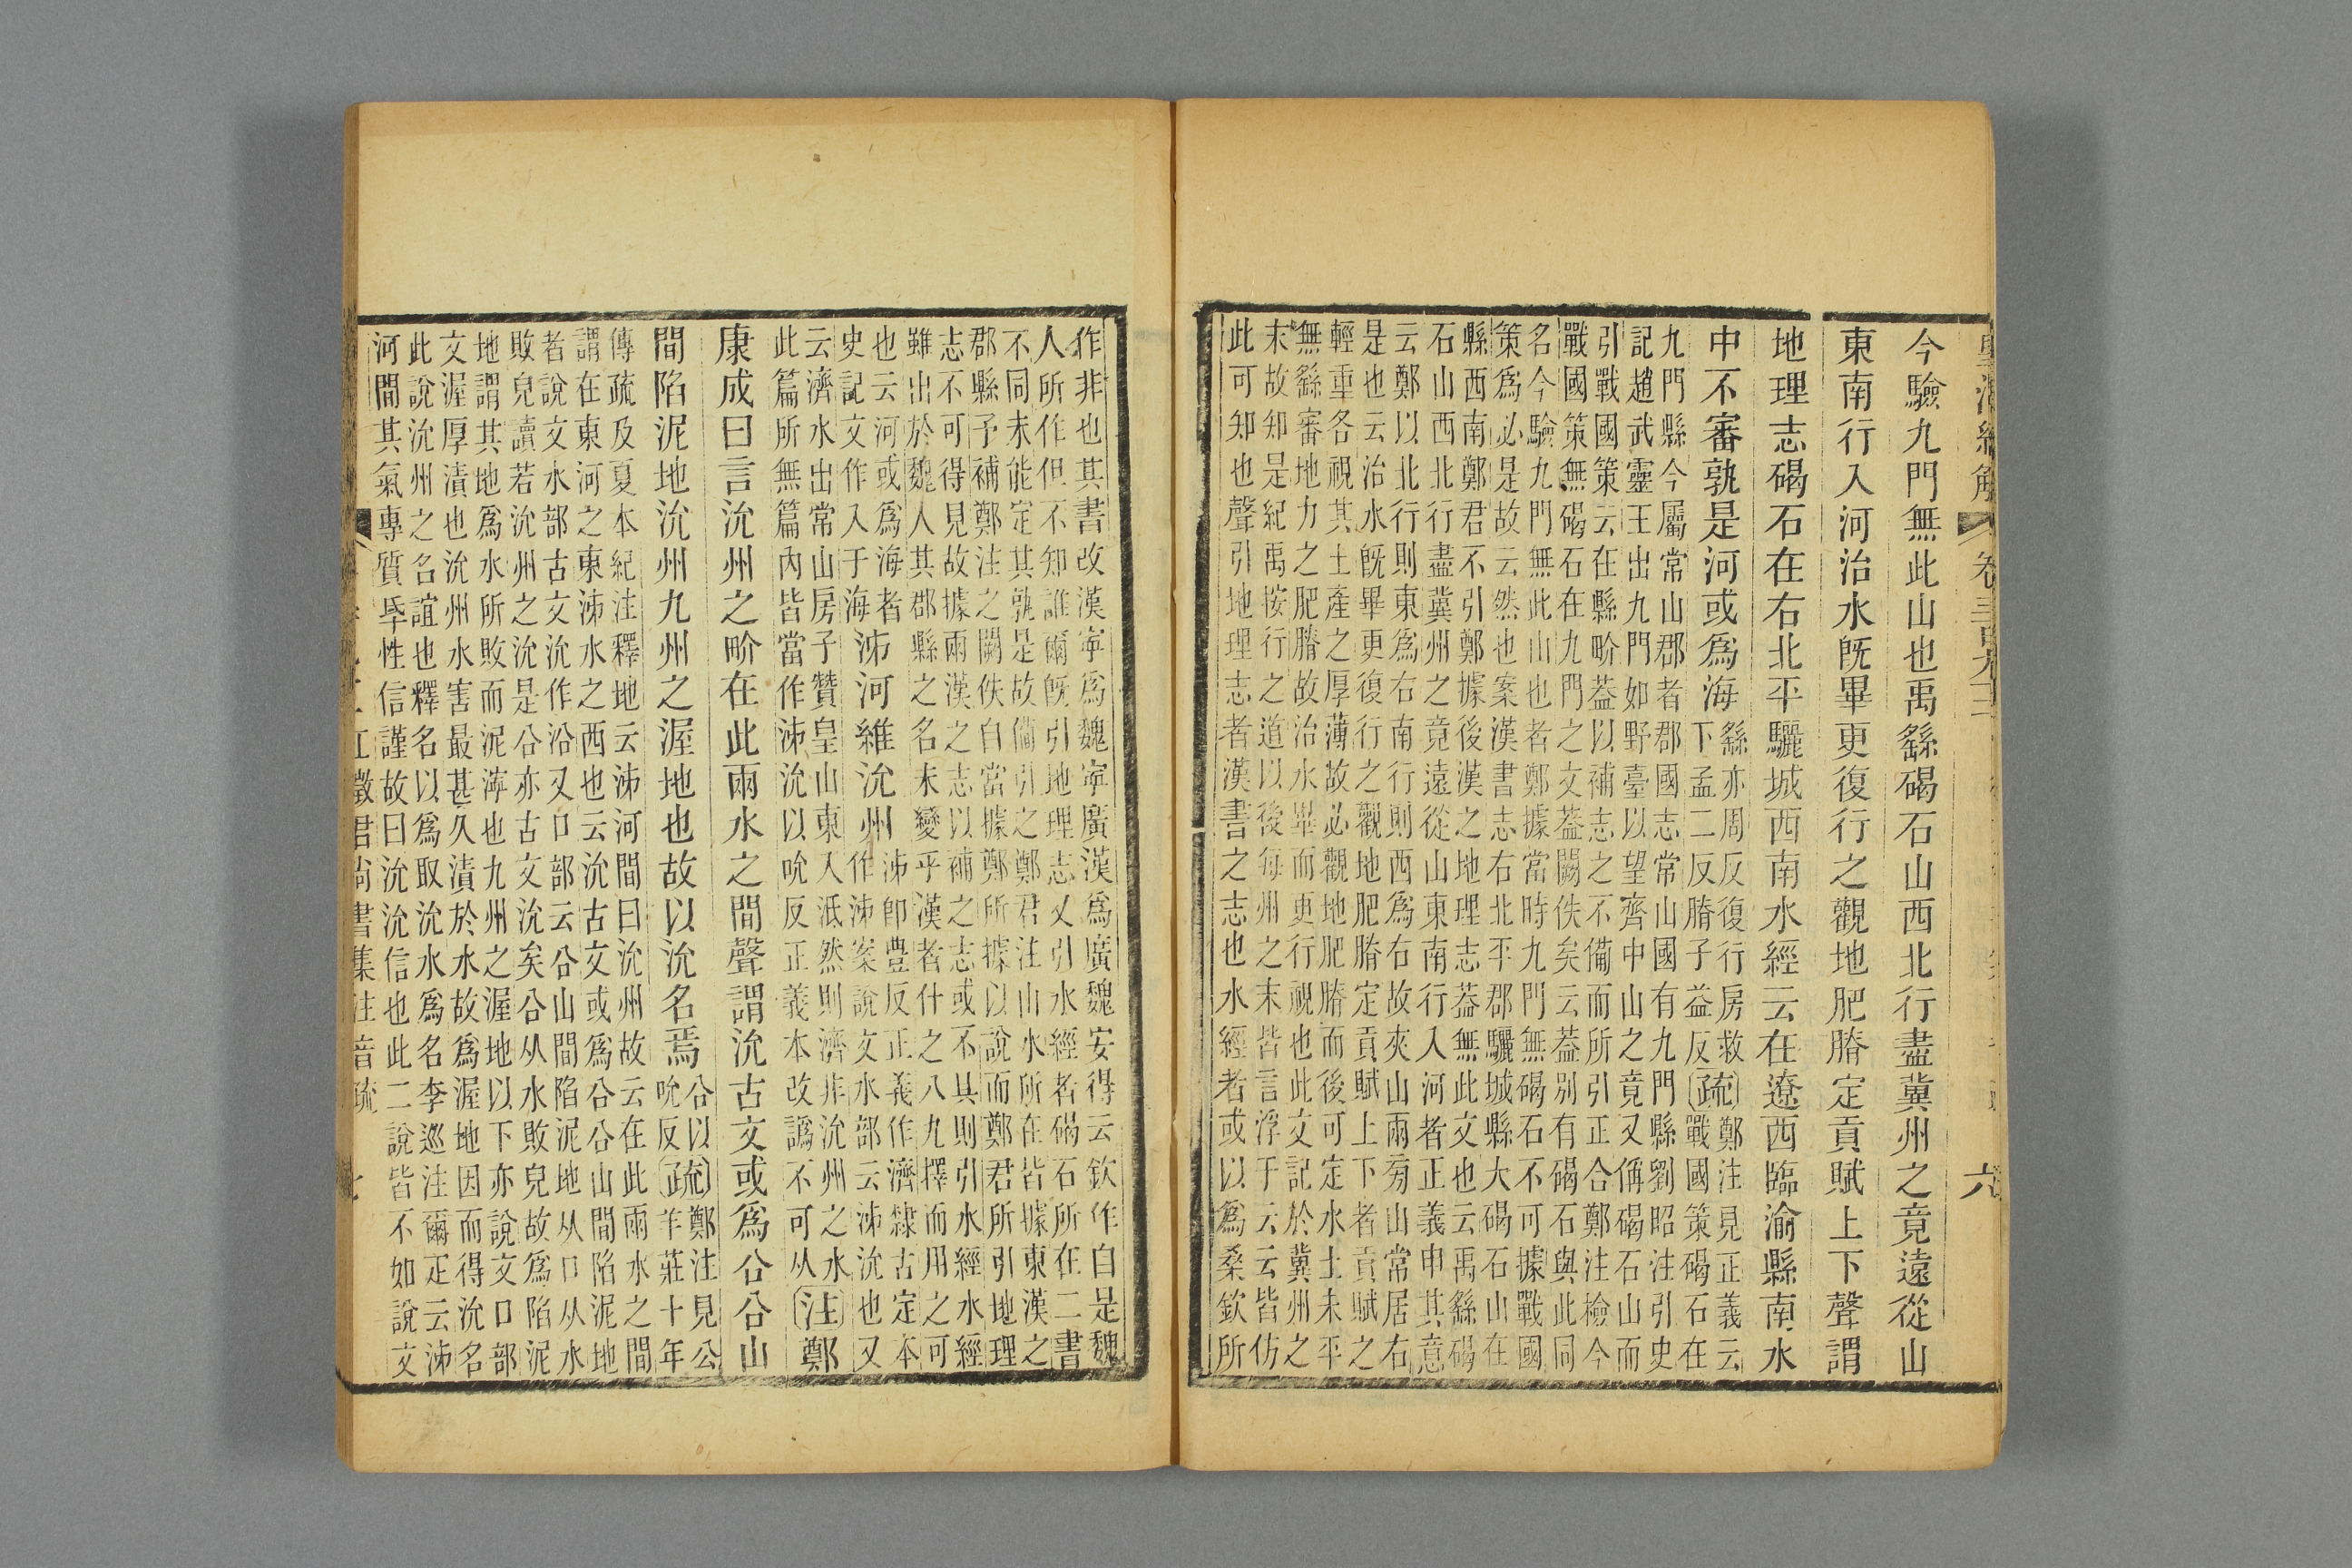 皇清經解 卷三百九十 六
今驗九門無此山也禹繇碣石山西北行盡冀州之竟遠從山
東南行入河治水旣畢更復行之觀地肥瘠定貢賦上下聲謂
地理志碣石在右北平驪城西南水經云在遼西臨渝縣南水
中不審孰是河或爲海繇亦周反復行房救下孟二反瘠子益反〔疏〕鄭注見正義云戰國策碣石在
九門縣今屬常山郡者郡國志常山國有九門縣劉昭注引史
記趙武靈王出九門如野臺以望齊中山之竟又偁碣石山而
引戰國策云在縣畍葢以補志之不備而所引正合鄭注檢今
戰國策無碣石在九門之文葢闕佚矣云葢別有碣石與此同
名今驗九門無此山也者鄭據當時九門無碣石不可據戰國
策爲必是故云然也案漢書志右北平郡驪城縣大碣石山在
縣西南鄭君不引鄭據後漢之地理志葢無此文也云禹繇碣
石山西北行盡冀州之竟遠從山東南行入河者正義申其意
云鄭以北行則東爲右南行則西爲右故夾山兩㫄山常居右
是也云治水旣畢更復行之觀地肥瘠定貢賦上下者貢賦之
輕重各視其土產之厚薄故必觀地肥瘠而後可定水土未平
無繇審地力之肥瘠故治水畢而更行視也此文記於冀州之
末故知是紀禹按行之道以後每州之末皆言浮于云云皆仿
此可知也聲引地理志者漢書之志也水經者或以爲桑欽所
作非也其書改漢寧爲魏寧廣漢爲廣魏安得云欽作自是魏
人所作但不知誰爾旣引地理志又引水經者碣石所在二書
不同未能定其孰是故僃引之鄭君注山水所在皆據東漢之
郡縣予補鄭注之闕佚自當據鄭所據以說而鄭君所引地理
志不可得見故據兩漢之志以補之志或不具則引水經水經
雖出於魏人其郡縣之名未變乎漢者什之八九擇而用之可
也云河或爲海者史記文作入于海泲河維沇州泲卽豊反正義作濟隸古定本作泲案說文水部云泲沇也又
云濟水出常山房子贊皇山東入泜然則濟非沇州之水此篇所無篇內皆當作泲沇以吮反正義本改譌不可从〔注〕鄭
康成曰言沇州之畍在此兩水之間聲謂沇古文或爲㕣㕣山
間陷泥地沇州九州之渥地也故以沇名焉㕣以吮反〔疏〕鄭注見公羊莊十年
傳疏及夏本紀注釋地云泲河間曰沇州故云在此兩水之間
謂在東河之東泲水之西也云沇古文或爲㕣㕣山間陷泥地
者說文水部古文沇作沿又口部云㕣山間陷泥地从口从水
敗皃讀若沇州之沇是㕣亦古文沇矣㕣从水敗皃故爲陷泥
地謂其地爲水所敗而泥濘也九州之渥地以下亦說文口部
文渥厚漬也沇州水害最甚久漬於水故爲渥地因而得沇名
此說沇州之名誼也釋名以爲取沇水爲名李巡注爾疋云泲
河間其氣專質氒性信謹故曰沇沇信也此二說皆不如說文
江徵君尚書集注音疏